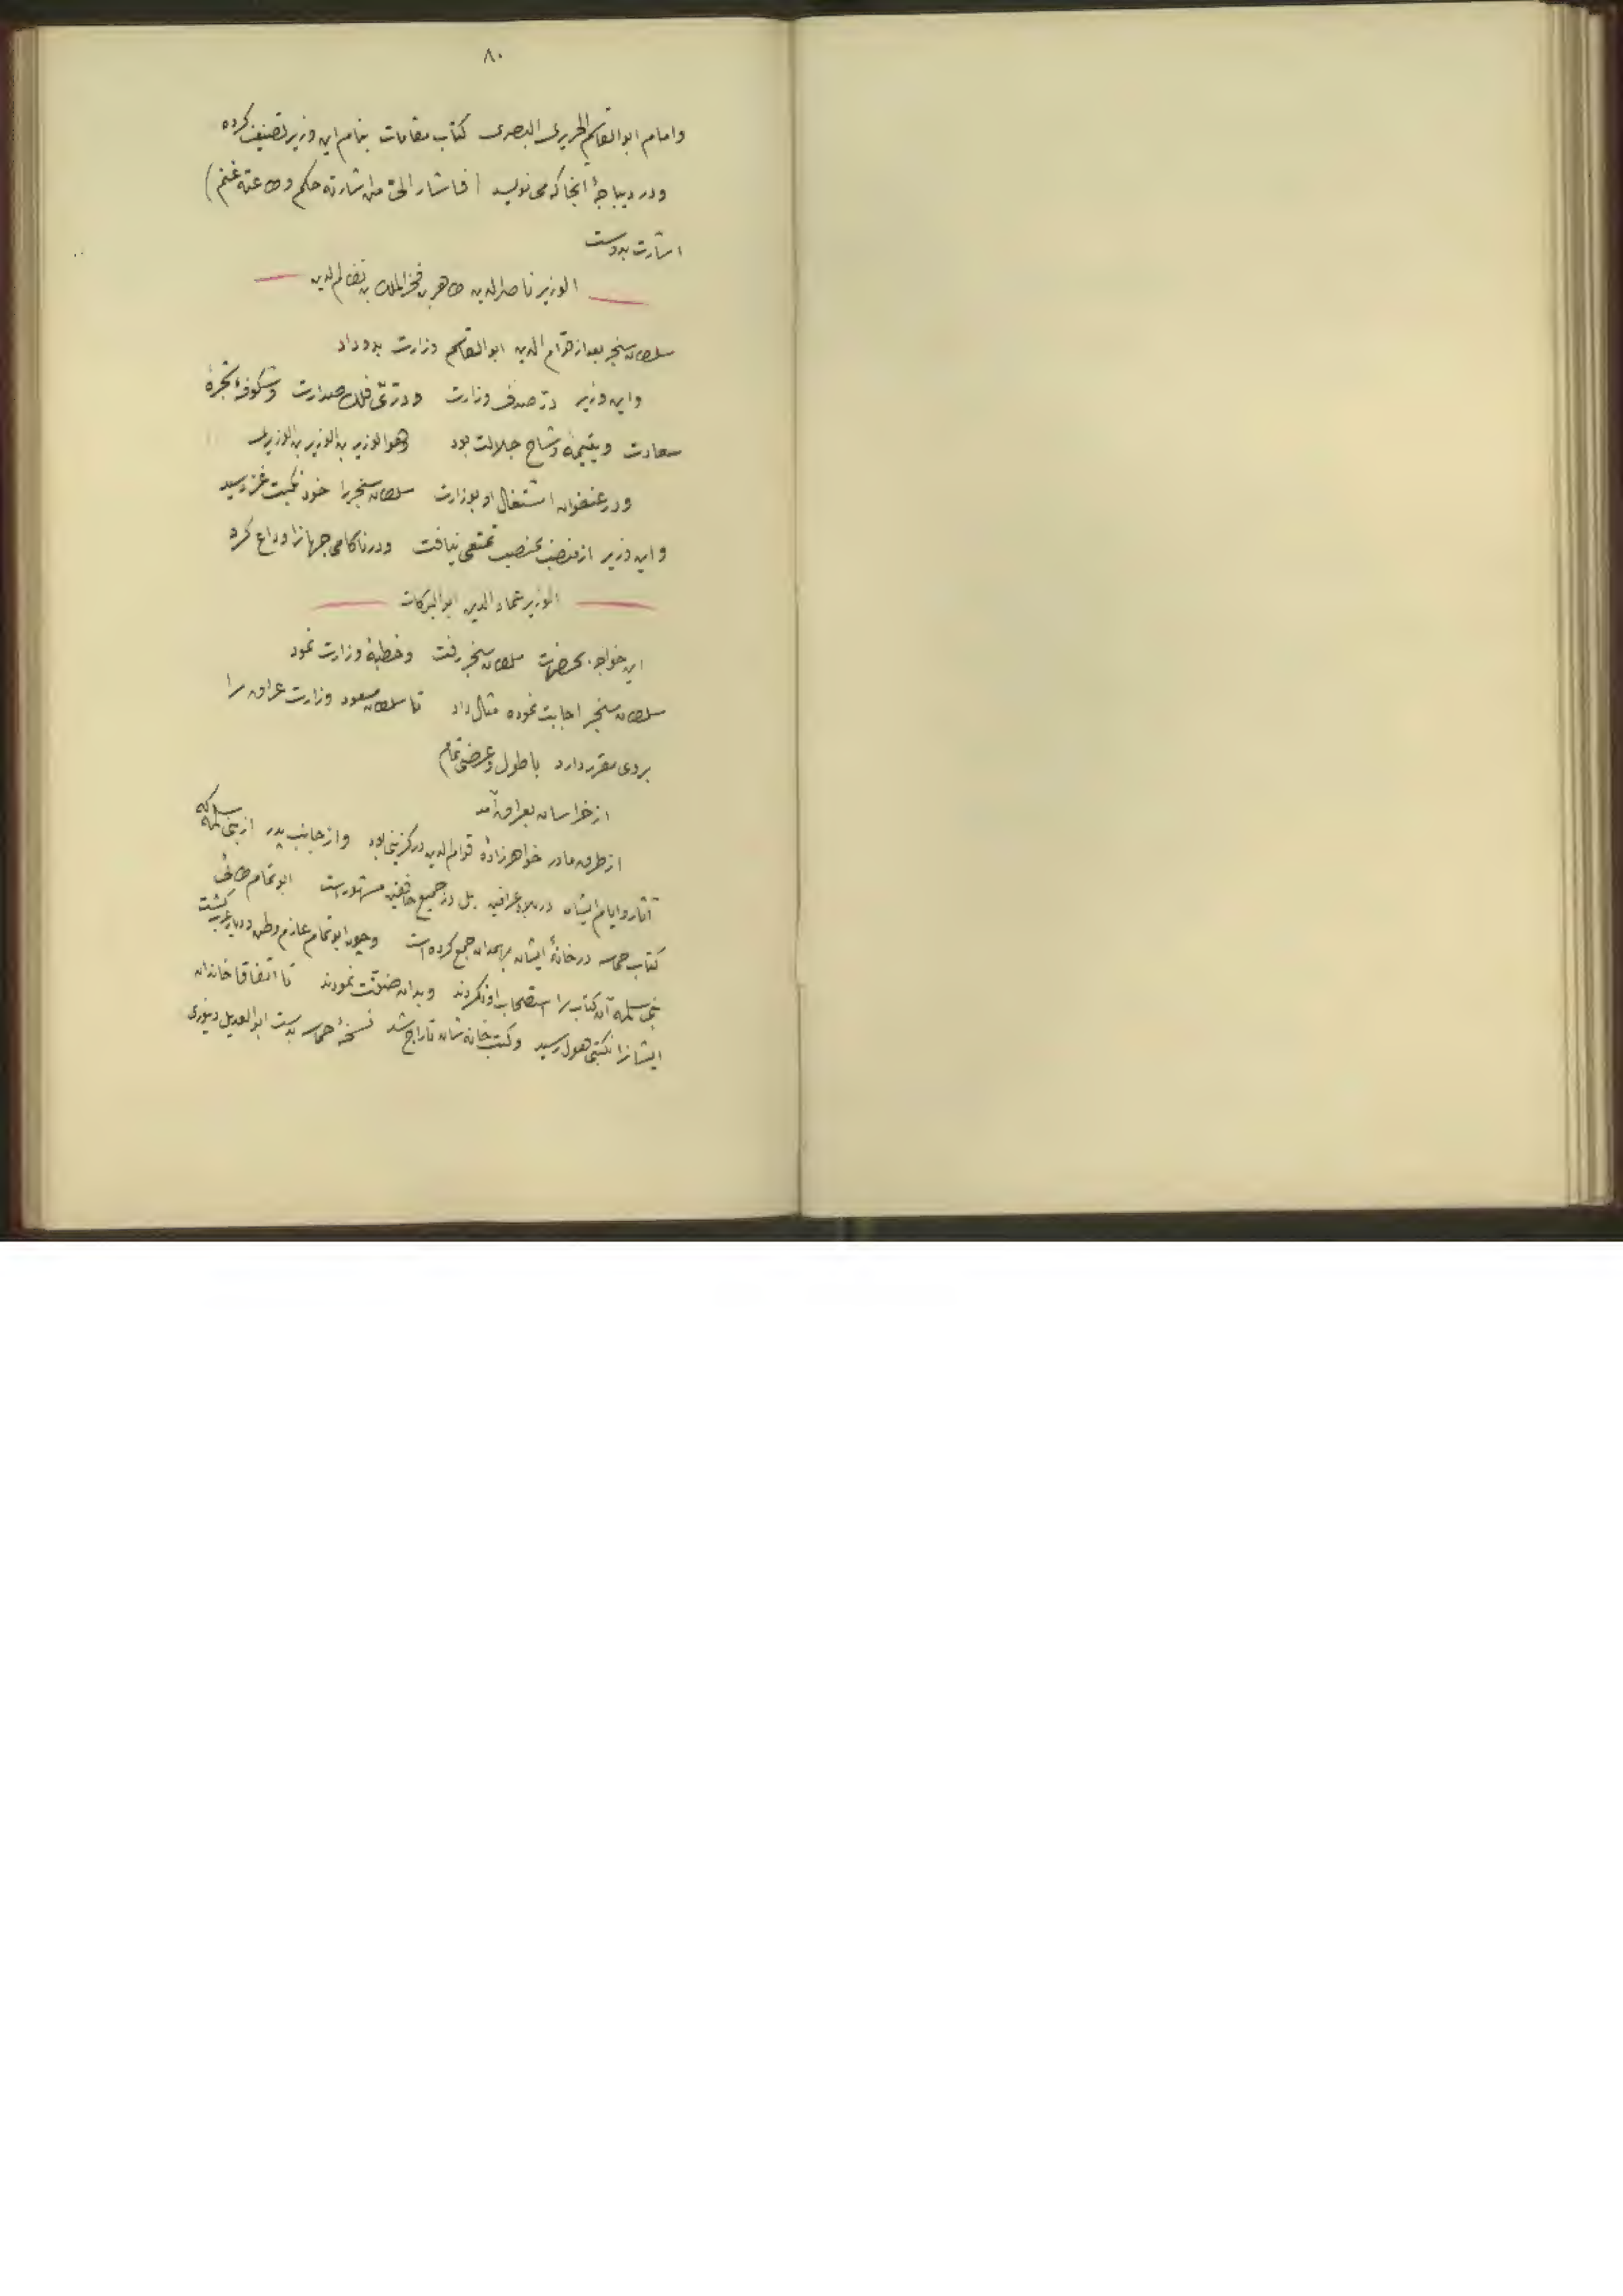 ۸۰
وامام ابوالقاسم الحریری البصری کتاب مقامات بنام این وزیر تصنیف کرده
ودر دیباجهٔ آنجا که می نویسد (فاشار الیّ من اشارته حکم وطاعته غنم)
اشارت بدوست
الوزیر ناصرالدین طاهر بن فخرالملک بن نظام الدین
سلطان سنجر بعد از قوام الدین ابوالقاسم وزارت بدو داد
واین وزیر درّ صدف وزارت ودرّی فلک صدارت وشکوفهٔ شجرهٔ
سعادت ویتیمهٔ وشاح جلالت بود وهو الوزیر بن الوزیر بن الوزیر
ودر عنفوان اشتغال او بوزارت سلطان سنجر را خود نکبت غز رسید
واین وزیر از منصب تمتعی نیافت ودر ناکامی جهانرا وداع کرد
الوزیر عماد الدین ابوالبرکات
این خواجه بحضرت سلطان سنجر رفت وخطبهٔ وزارت نمود
سلطان سنجر اجابت نموده مثال داد تا سلطان مسعود وزارت عراق را
بروی مقرر دارد با طول وعرضی تمام
از خراسان بعراق آمد
از طرف مادر خواهرزادهٔ قوام الدین درکزینی بود واز جانب پدر از بنی سلمه که
آثار وایام ایشان در بلاد عراقین بل در جمیع خافقین مشهورست ابو تمام طائی
کتاب حماسه در خانهٔ ایشان بهمدان جمع کرده است وچون ابو تمام عازم وطن ودیار عرب گشت
بنی سلمه آن کتاب را استصحاب او نکردند وبدان ضنّت نمودند تا اتفاقا خاندان
ایشانرا نکبتی هول رسید وکتب خانه شان تاراج شد نسخهٔ حماسه بدست ابوالعدیل دینوری